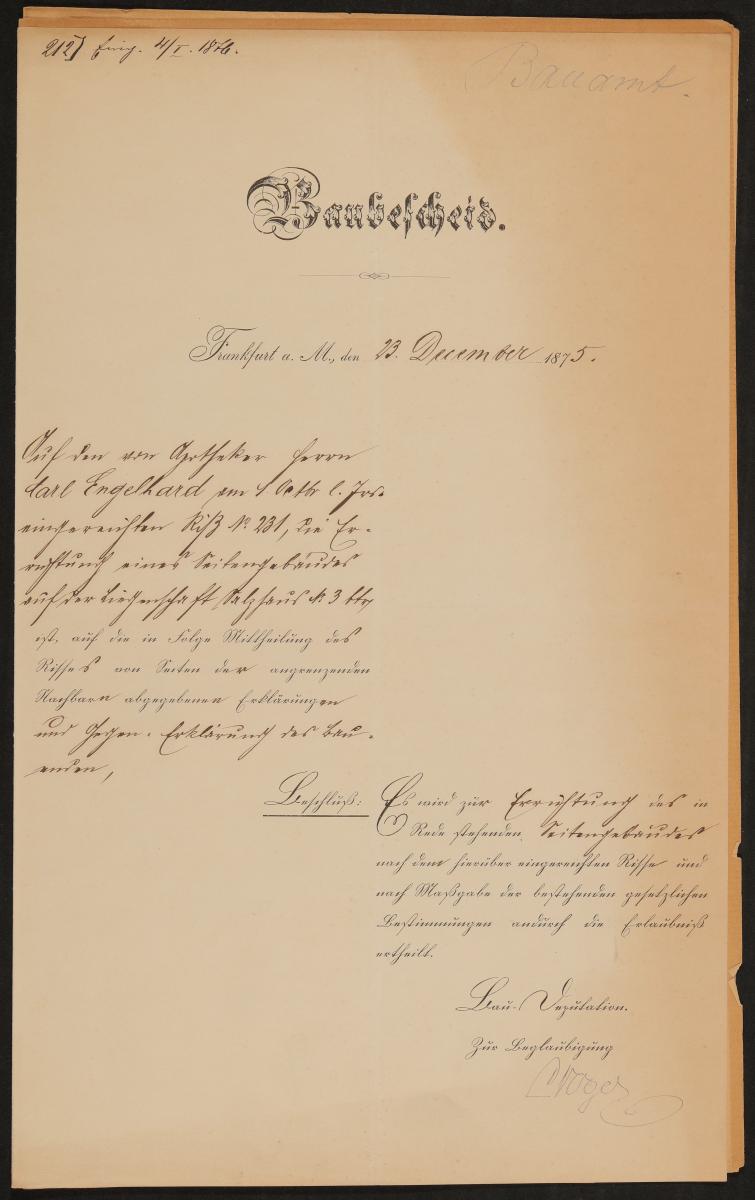 212) Eing. 4/I. 1876.
Bauamt.
Baubescheid.
Frankfurt a. M., den 23. December 1875.
Auf den von Apotheker Herrn
Carl Engelhard am 1. Octbr l. Jrs.
eingereichten Riß No. 231, die Er-
richtung eines Seitengebäudes
auf der Liegenschaft Salzhaus No. 3 btr.
ist, auf die in Folge Mittheilung des
Risses von Seiten der angrenzenden
Nachbarn abgegebenen Erklärungen
und Gegen-Erklärung des Bau-
enden,
Beschluß:
Es wird zur Errichtung des in
Rede stehenden Seitengebäudes
nach dem hierüber eingereichten Risse und
nach Maßgabe der bestehenden gesetzlichen
Bestimmungen andurch die Erlaubniß
ertheilt.
Bau-Deputation.
Zur Beglaubigung